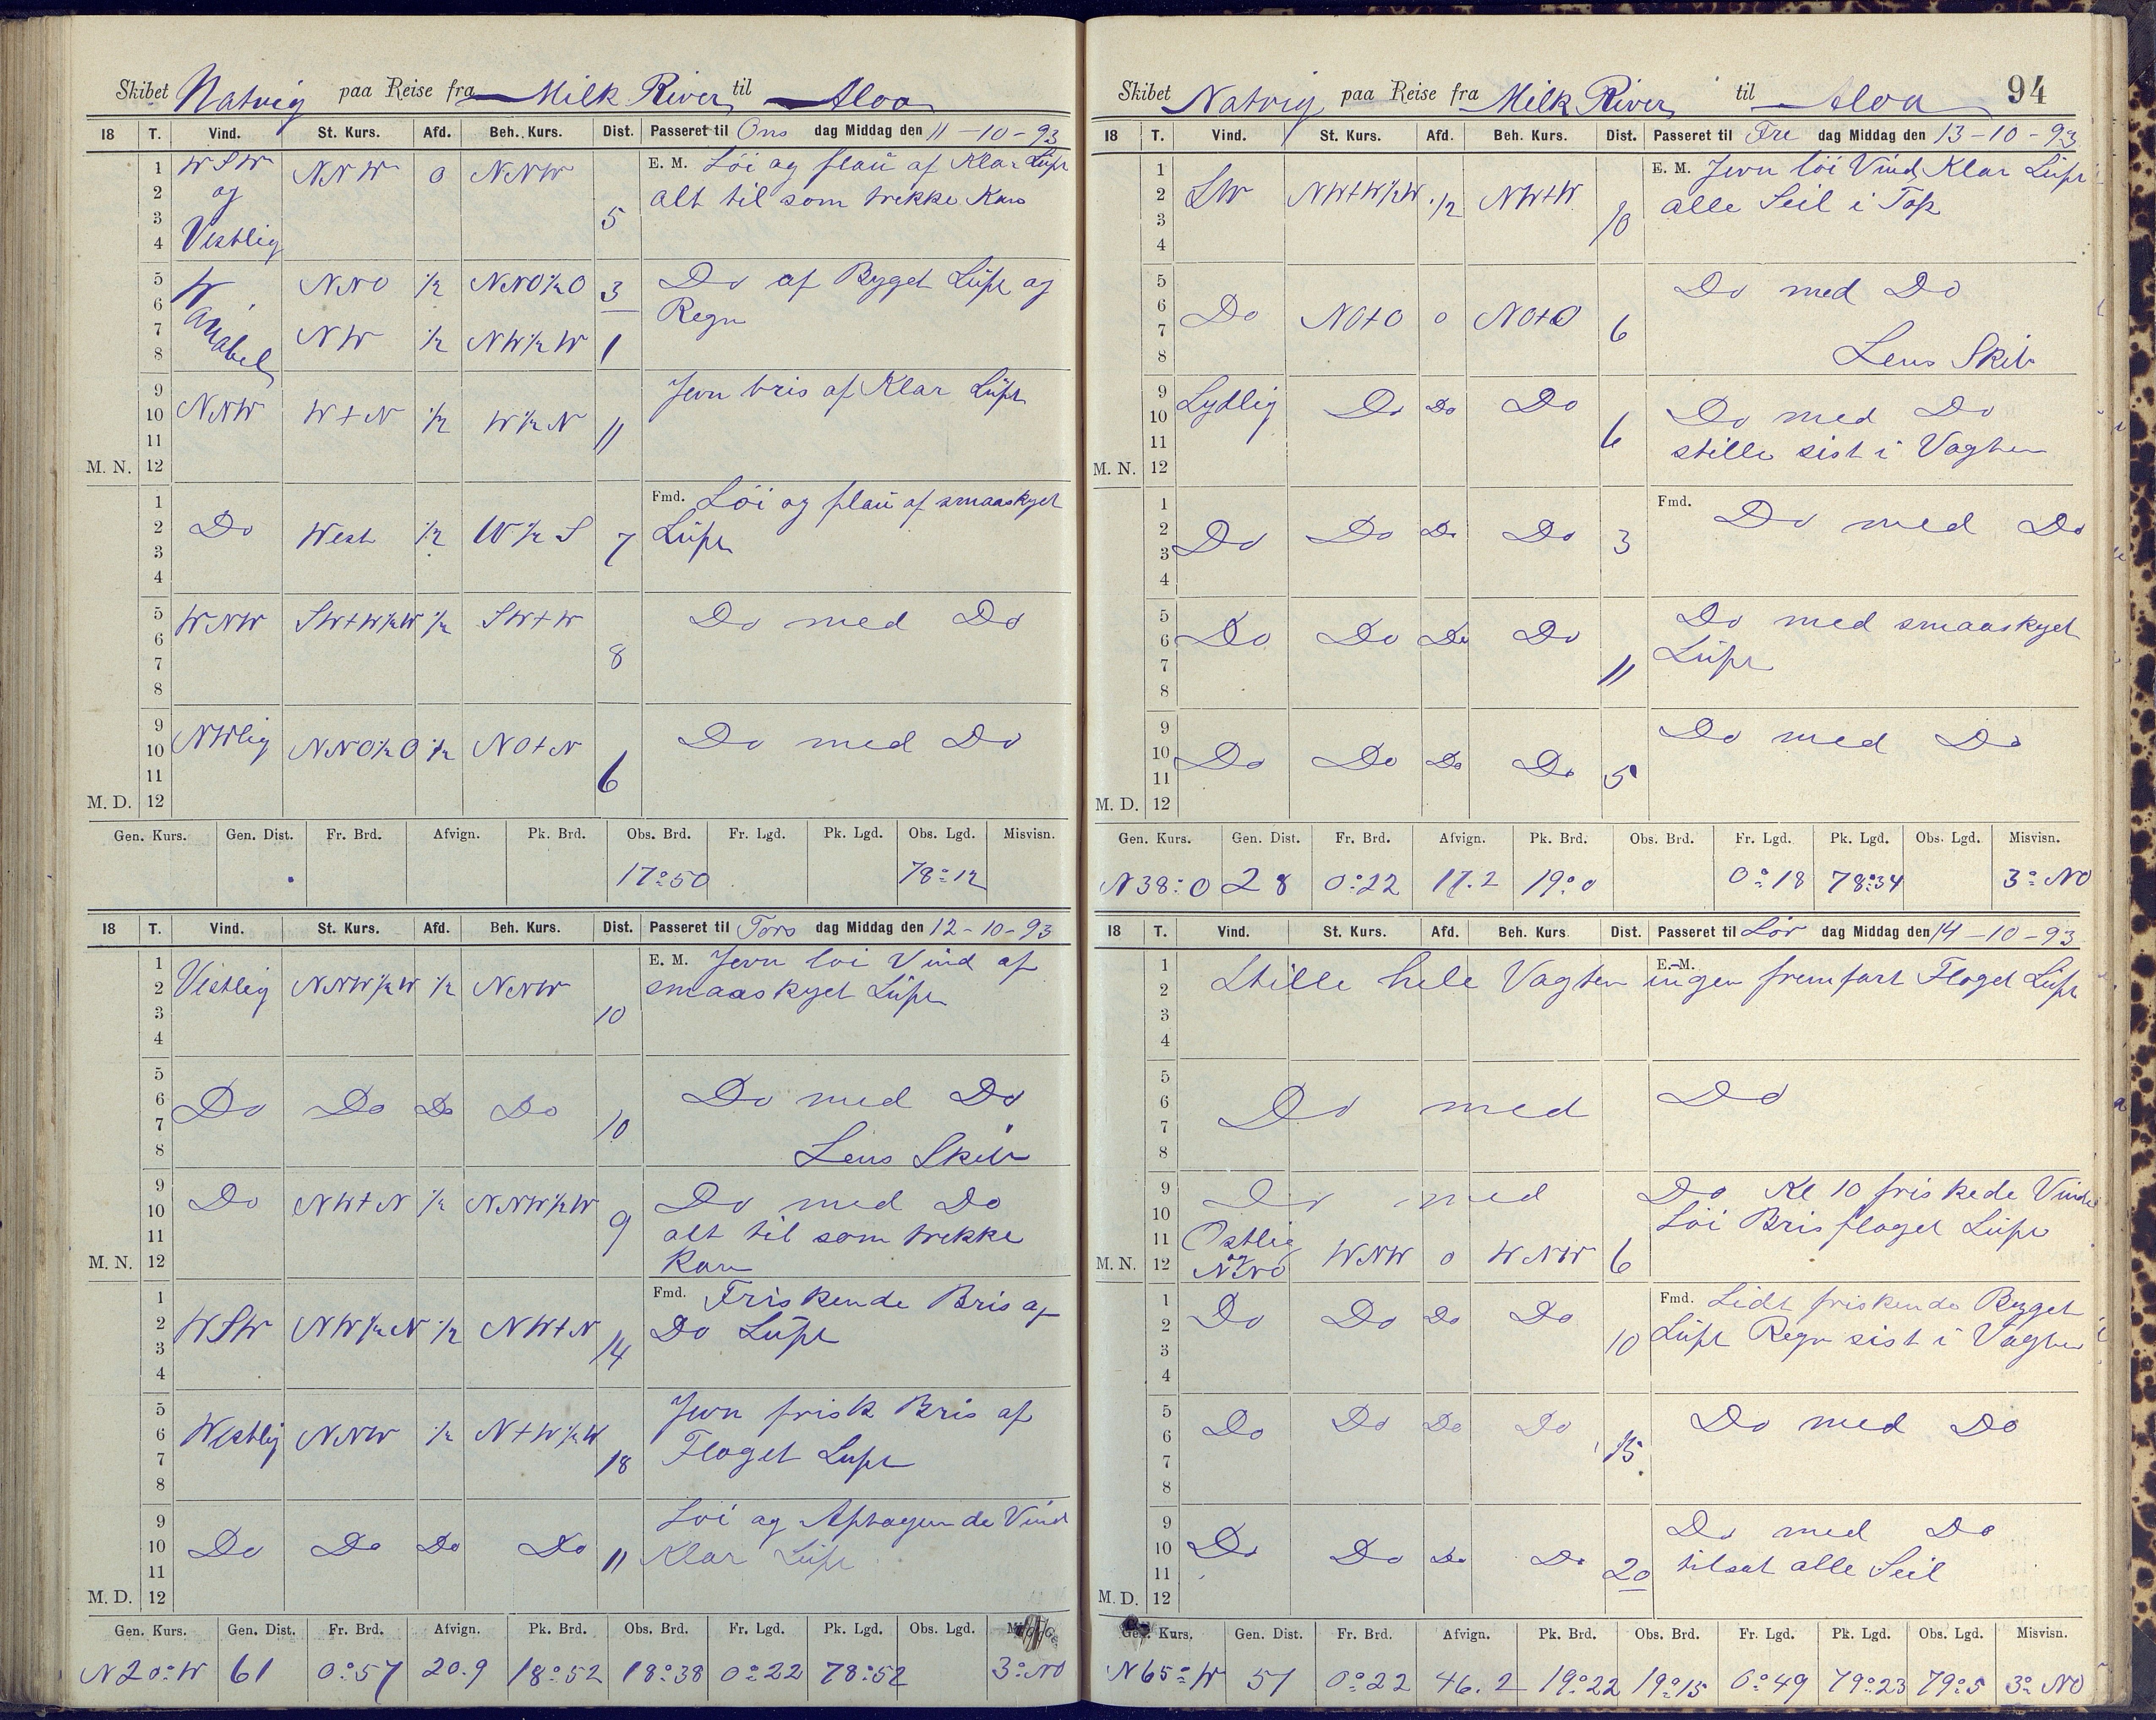 Skibet Natvig paa Reise fra Milk River til Aloa
18 T. Vind. St. Kurs. Afd. Beh. Kurs. Dist. Passeret til Ons dag Middag den 11-10-93
1 WSW NNW 0 NNW E. M. Löi og flau af Klar Lüft
2 og alt til som trekke Kan
3 5
4 Vestlig
5 W NNO ½ NNO½O 3 Do af Byget Lüft og
6 Regn
7 NW ½ NW½W 1
8
9 Jevn bris af Klar Lüft
10 NNW W+N ½ W½N 11
11
M. N. 12
1 Fmd. Löi og flau af smaaskyet
2 Do West ½ W½S 7 Lüft
3
4
5 WNW SW+W½W ½ SW+W Do med Do
6
7 8
8
9
10 NWlig NNO½O ½ NO+N Do med Do
11 6
M. D. 12
Gen. Kurs. Gen. Dist. Fr. Brd. Afvign. Pk. Brd. Obs. Brd. Fr. Lgd. Pk. Lgd. Obs. Lgd. Misvisn.
17°50 78°12
18 T. Vind. St. Kurs. Afd. Beh. Kurs. Dist. Passeret til Tors dag Middag den 12-10-93
1 E. M. Jevn löi Vind af
2 Vestlig NNW½W ½ NNW smaaskyet Lüft
3 10
4
5
6 Do Do Do Do Do med Do
7 10
8 Lens Skib
9 Do NW+N ½ NNW½W Do med Do
10 9
11 alt til som trekke
M. N. 12 Kan
1 Fmd. Friskende Bris af
2 WSW NW½N ½ NW+N Do Lüft
3 14
4
5 Jevn frisk Bris af
6 Westlig NNW ½ N+W½W
7 18 Floget Luft
8
9 Löi og Aftagende Vind
10 Do Do Do Do 11 Klar Lüft
11
M. D. 12
Gen. Kurs. Gen. Dist. Fr. Brd. Afvign. Pk. Brd. Obs. Brd. Fr. Lgd. Pk. Lgd. Obs. Lgd.
N20°W 61 0°57 20.9 18°52 18°38 0°22 78°52 3° NO
Skibet Natvig paa Reise fra Milk River til Aloa 94
18 T. Vind. St. Kurs. Afd. Beh. Kurs. Dist. Passeret til Fre dag Middag den 13-10-93
1 E. M. Jevn löi Vind, Klar Lüft
2 SW NW+W½W ½ NW+W alle Seil i Top
3 10
4
5 Do med Do
6 Do NO+O 0 NO+O 6
7
8 Lens Skib
9 Sydlig Do Do Do
10 Do med Do
11 6 stille sist i Vagten
M. N. 12
1 Fmd. Do med Do
2 Do Do Do Do 3
3
4
5 Do med smaaskyet
6 Do Do Do Do Lüft
7 11
8
9 Do med Do
10 Do Do Do Do
11 5
M. D. 12
Gen. Kurs. Gen. Dist. Fr. Brd. Afvign. Pk. Brd. Obs. Brd. Fr. Lgd. Pk. Lgd. Obs. Lgd. Misvisn.
N38°O 28 0°22 17.2 19°0 0°18 78°34 3° NO
18 T. Vind. St. Kurs. Afd. Beh. Kurs Dist. Passeret til Lör dag Middag den 14-10-93
1 E. M.
2 Stille hele Vagten ingen fremfart Floget Lüft
3
4
5
6 Do med Do
7
8
9 Do med Do Kl 10 friskede Vinden
10 Löi Bris floget Lüft
11 Ostlig
M. N. 12 og NNO WNW 0 WNW 6
1 Fmd. Lidt friskende Byget
2 Do Do Do Do 10 Lüft Regn sist i Vagten
3
4
5 Do Do Do Do Do med Do
6
7 15
8
9 Do med Do
10 Do Do Do Do
11 20 tilsat alle Seil
M. D. 12
Gen. Kurs. Gen. Dist. Fr. Brd. Afvign. Pk. Brd. Obs. Brd. Fr. Lgd. Pk. Lgd. Obs. Lgd. Misvisn.
N65°W 51 0°22 46.2 19°22 19°15 0°49 79°23 79°5 3° NO